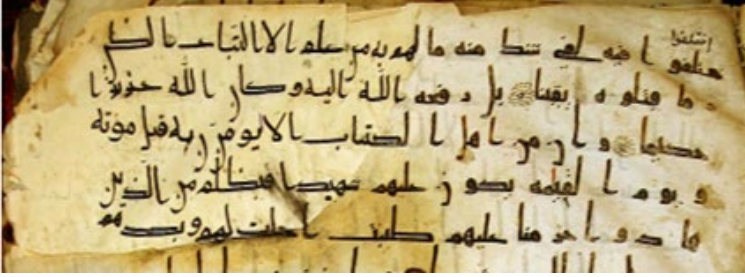 اختلفوا
ختلفوا فيه لفي شك منه ما لهم به من علم الا اتباع الظن
و ما قتلوه يقينا بل رفعه الله اليه وكان الله عزيزا
حكيما و ان من اهل الكتاب الا ليومنن به قبل موته
و يوم القيمه يكون عليهم شهيدا فبظلم من الذين
هادوا حرمنا عليهم طيبت احلت لهم وبصدهم